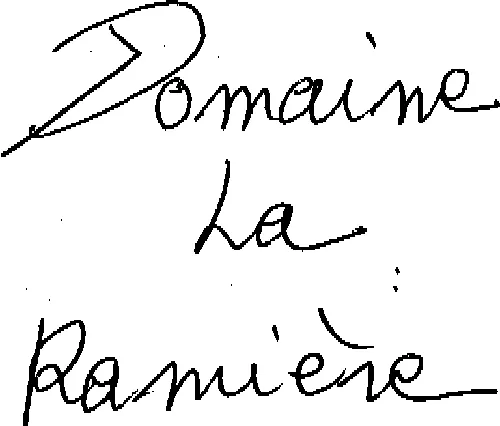 Domaine
La
Ramière